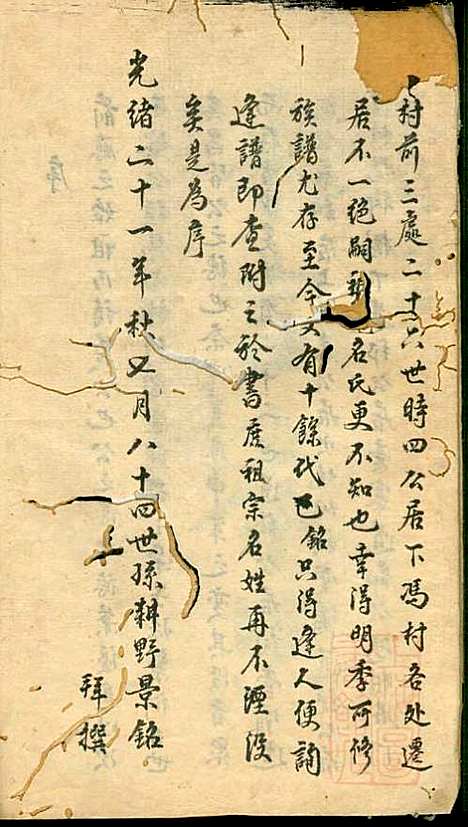 村前三處二十六世時四公居下馮村各處遷
居不一絕嗣名氏更不知也幸得明季可修
族譜尤存至今又有十餘代已銘只得逢人便詢
逢譜即查附之於書庶祖宗名姓再不湮沒
矣是為序
光緒二十一年秋又月八十四世孫耕野景銘
拜撰